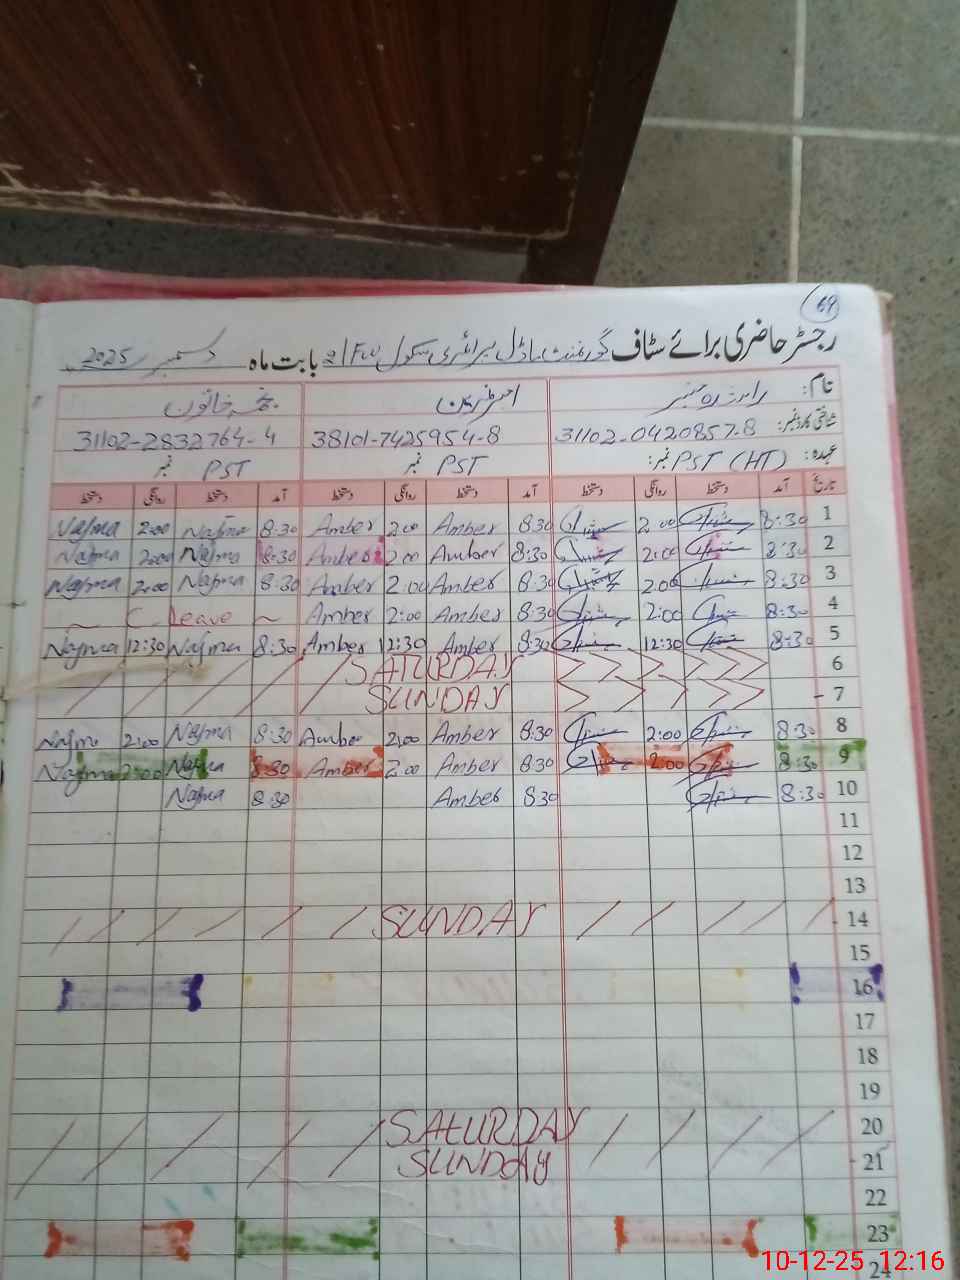 69
رجسٹر حاضری برائے سٹاف گورنمنٹ ماڈل پرائمری سکول 21/FW بابت ماہ دسمبر 2025
نام:
شناختی کارڈ نمبر: 31102-0420857-8 38101-7425954-8 31102-2832764-4
عہدہ: PST (HT) نمبر: PST نمبر PST نمبر
تاریخ آمد دستخط روانگی دستخط آمد دستخط روانگی دستخط آمد دستخط روانگی دستخط
1 8:30 2:00 8:30 Amber 2:00 Amber 8:30 Najma 2:00 Najma
2 8:30 2:00 8:30 Amber 2:00 Amber 8:30 Najma 2:00 Najma
3 8:30 2:00 8:30 Amber 2:00 Amber 8:30 Najma 2:00 Najma
4 8:30 2:00 8:30 Amber 2:00 Amber C. leave
5 8:30 12:30 8:30 Amber 12:30 Amber 8:30 Najma 12:30 Najma
6 SATURDAY
7 SUNDAY
8 8:30 2:00 8:30 Amber 2:00 Amber 8:30 Najma 2:00 Najma
9 8:30 2:00 8:30 Amber 2:00 Amber 8:30 Najma 2:00 Najma
10 8:30 8:30 Amber 8:30 Najma
11
12
13
14 SUNDAY
15
16
17
18
19
20 SATURDAY
21 SUNDAY
22
23
24
10-12-25 12:16